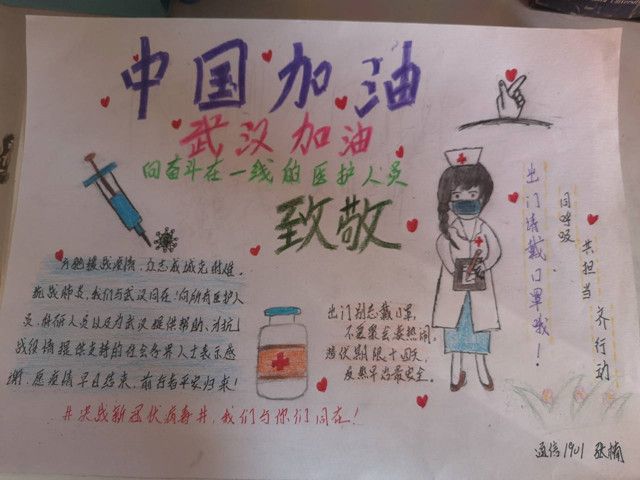 中国加油
武汉加油
向奋斗在一线的医护人员
致敬
出门请戴口罩哦！
同呼吸
共担当
齐行动
万众援战疫情，众志成城克时难。
抗战肺炎，我们与武汉同在！向所有医护人
员，科研人员以及为武汉提供帮助、为抗
战疫情提供支持的社会各界人士表示感
谢，愿疫情早日结束，前行者平安归来！
出门别忘戴口罩，
不要聚会凑热闹，
潜伏期限十四天，
发热早治最安全。
#决战新冠状病毒#，我们与你们同在！
通信1901 张楠